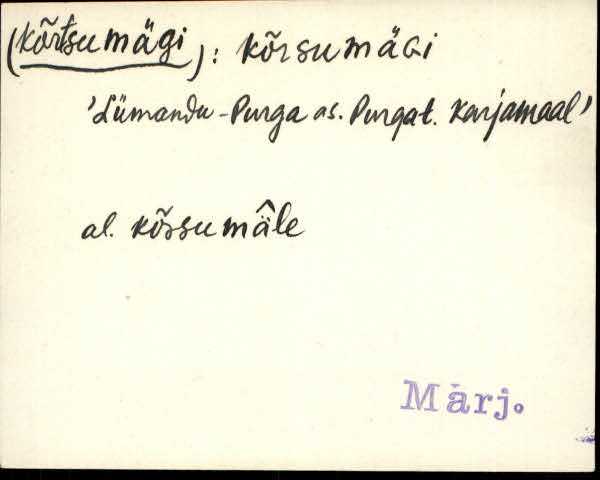 (kõrtsumägi): kõrsumäGi
'Lümandu-Purga as. Purgat. karjamaal'
al. kõrsumä̂le
Märj.